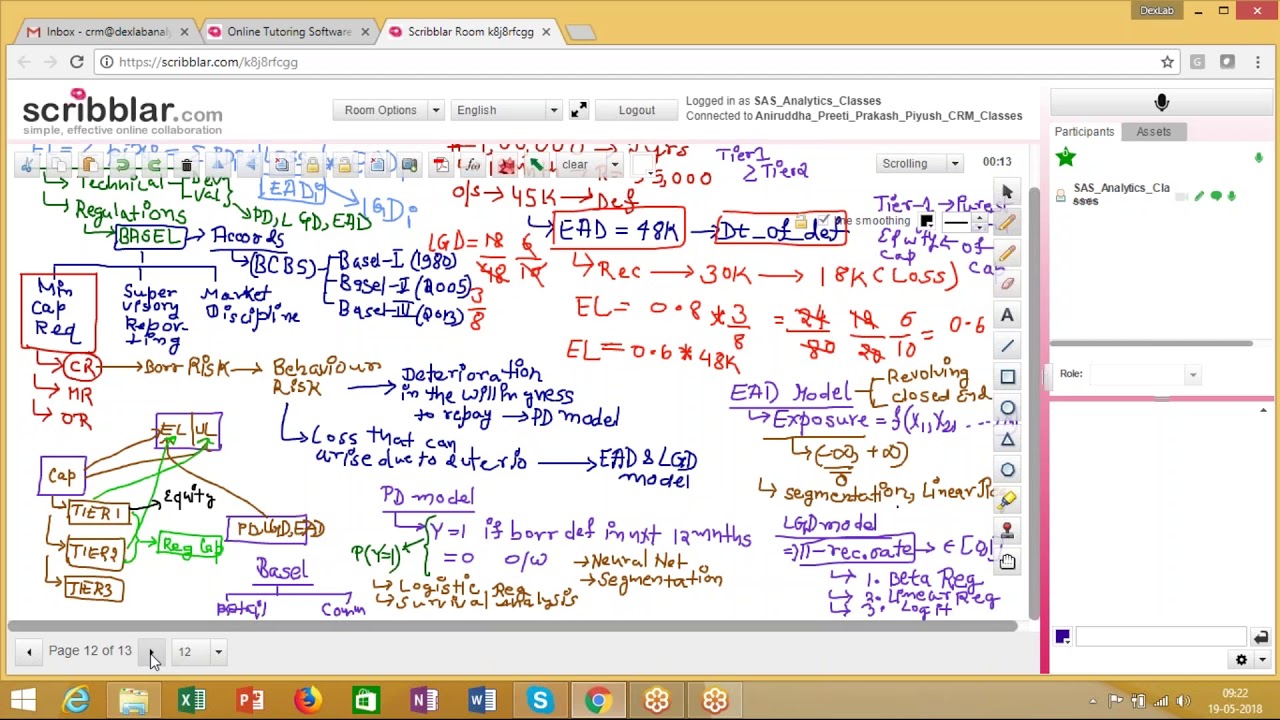 DexLab
Inbox - crm@dexlabanaly
Online Tutoring Software
Scribblar Room k8j8rfcgg
https://scribblar.com/k8j8rfcgg
scribblar.com
simple, effective online collaboration
Room Options
English
Logout
Logged in as SAS_Analytics_Classes
Connected to Aniruddha_Preeti_Prakash_Piyush_CRM_Classes
Participants
Assets
clear
Scrolling
00:13
SAS_Analytics_Cla
sses
smoothing
Role:
Technical
Val
Regulations
PD, LGD, EAD
EADi
LGDi
BASEL
Accords
BCBS
Basel-I (1980)
Basel-II (2005)
Basel-III (2013)
Min
Cap
Req
Super
visory
Repor-
ting
Market
Discipline
CR
MR
OR
Borr Risk
Behaviour
Risk
Deterioration
in the willingness
to repay → PD model
Loss that can
arise due to deterio → EAD & LGD
model
Tier1
≥ Tier2
o/s → 45K → Def
EAD = 48K → Dt_of_def
LGD = 18 6
48 16
3
8
Rec → 30K → 18K (Loss)
EL = 0.8 * 3/8 = 24/80 12/20 6/10 = 0.6
EL = 0.6 * 48K
Equity
of
Cap
EAD Model
Revolving
closed End
Exposure = f(X1, X2, ...
(-∞, +∞)
0
segmentation, Linear
EL UL
Cap
TIER1
Equity
TIER2
Reg Cap
TIER3
PD, LGD, EAD
Basel
Comm
PD model
Y=1 if borr def in nxt 12 mnths
=0 o/w
P(Y=1)
Neural Net
Segmentation
Logistic Reg
Survival Analysis
LGD model
=> 1-rec.rate → ∈ [0,
1. Beta Reg
2. Linear Reg
3. Logit
Page 12 of 13
12
09:22
19-05-2018